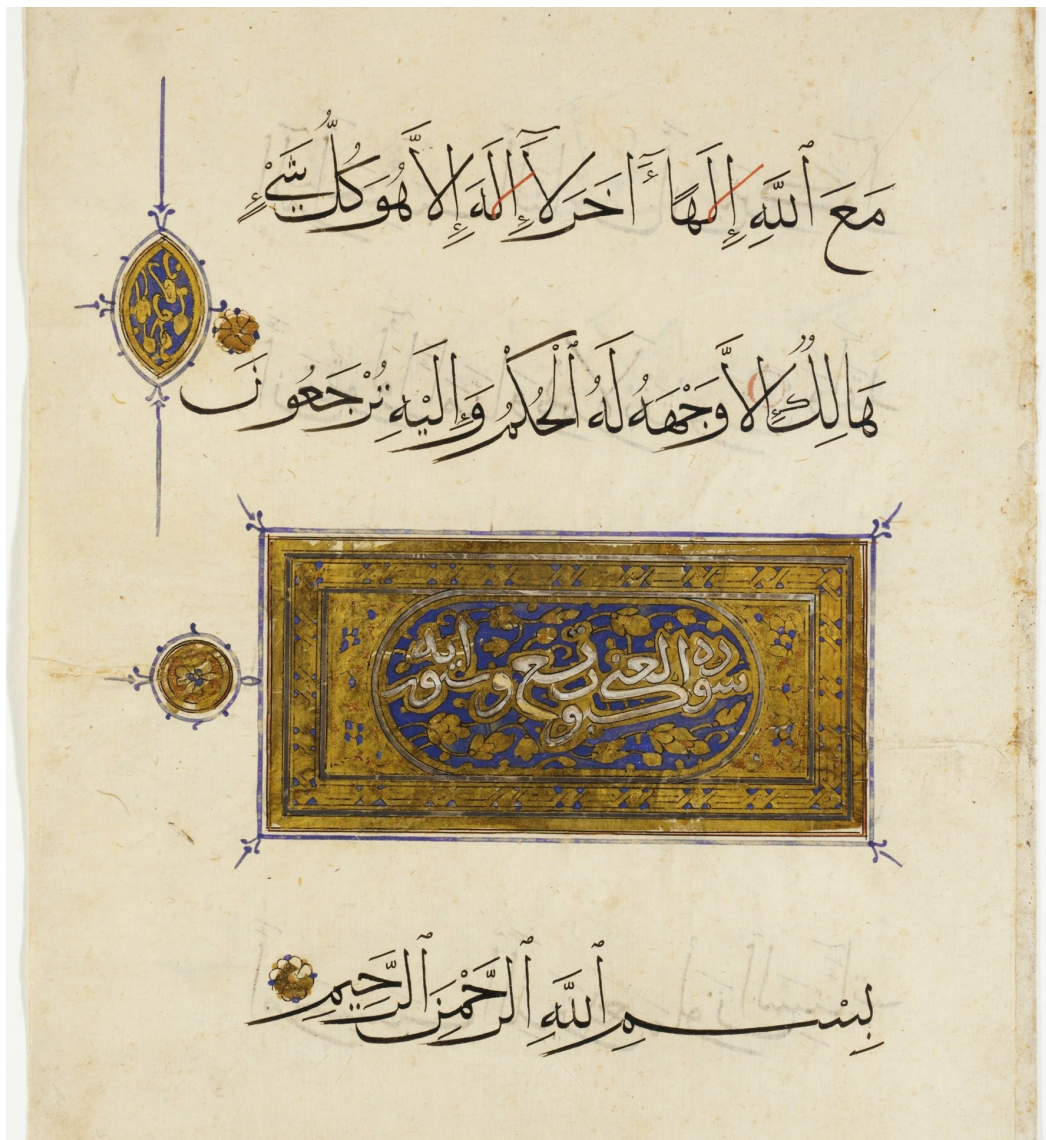 مَعَ ٱللَّهِ إِلَهًا ءَاخَرَ لَآ إِلَهَ إِلَّا هُوَ كُلُّ شَىْءٍ
هَالِكٌ إِلَّا وَجْهَهُ لَهُ ٱلْحُكْمُ وَإِلَيْهِ تُرْجَعُونَ
سوره العنكبوت تسع وستون ايه
بِسْمِ ٱللَّهِ ٱلرَّحْمَنِ ٱلرَّحِيمِ